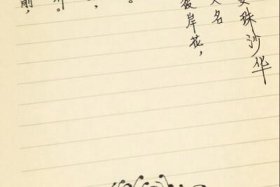 曼珠沙华
名
彼岸花，
。
。